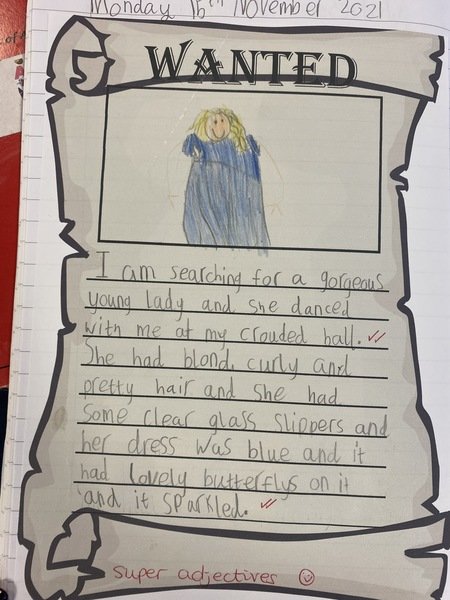 Monday 15th November 2021
WANTED
I am searching for a gorgeous
young lady and she danced
with me at my crouded ball.
She had blond, curly and
pretty hair and she had
some clear glass slippers and
her dress was blue and it
had lovely butterflys on it
and it sparkled.
super adjectives